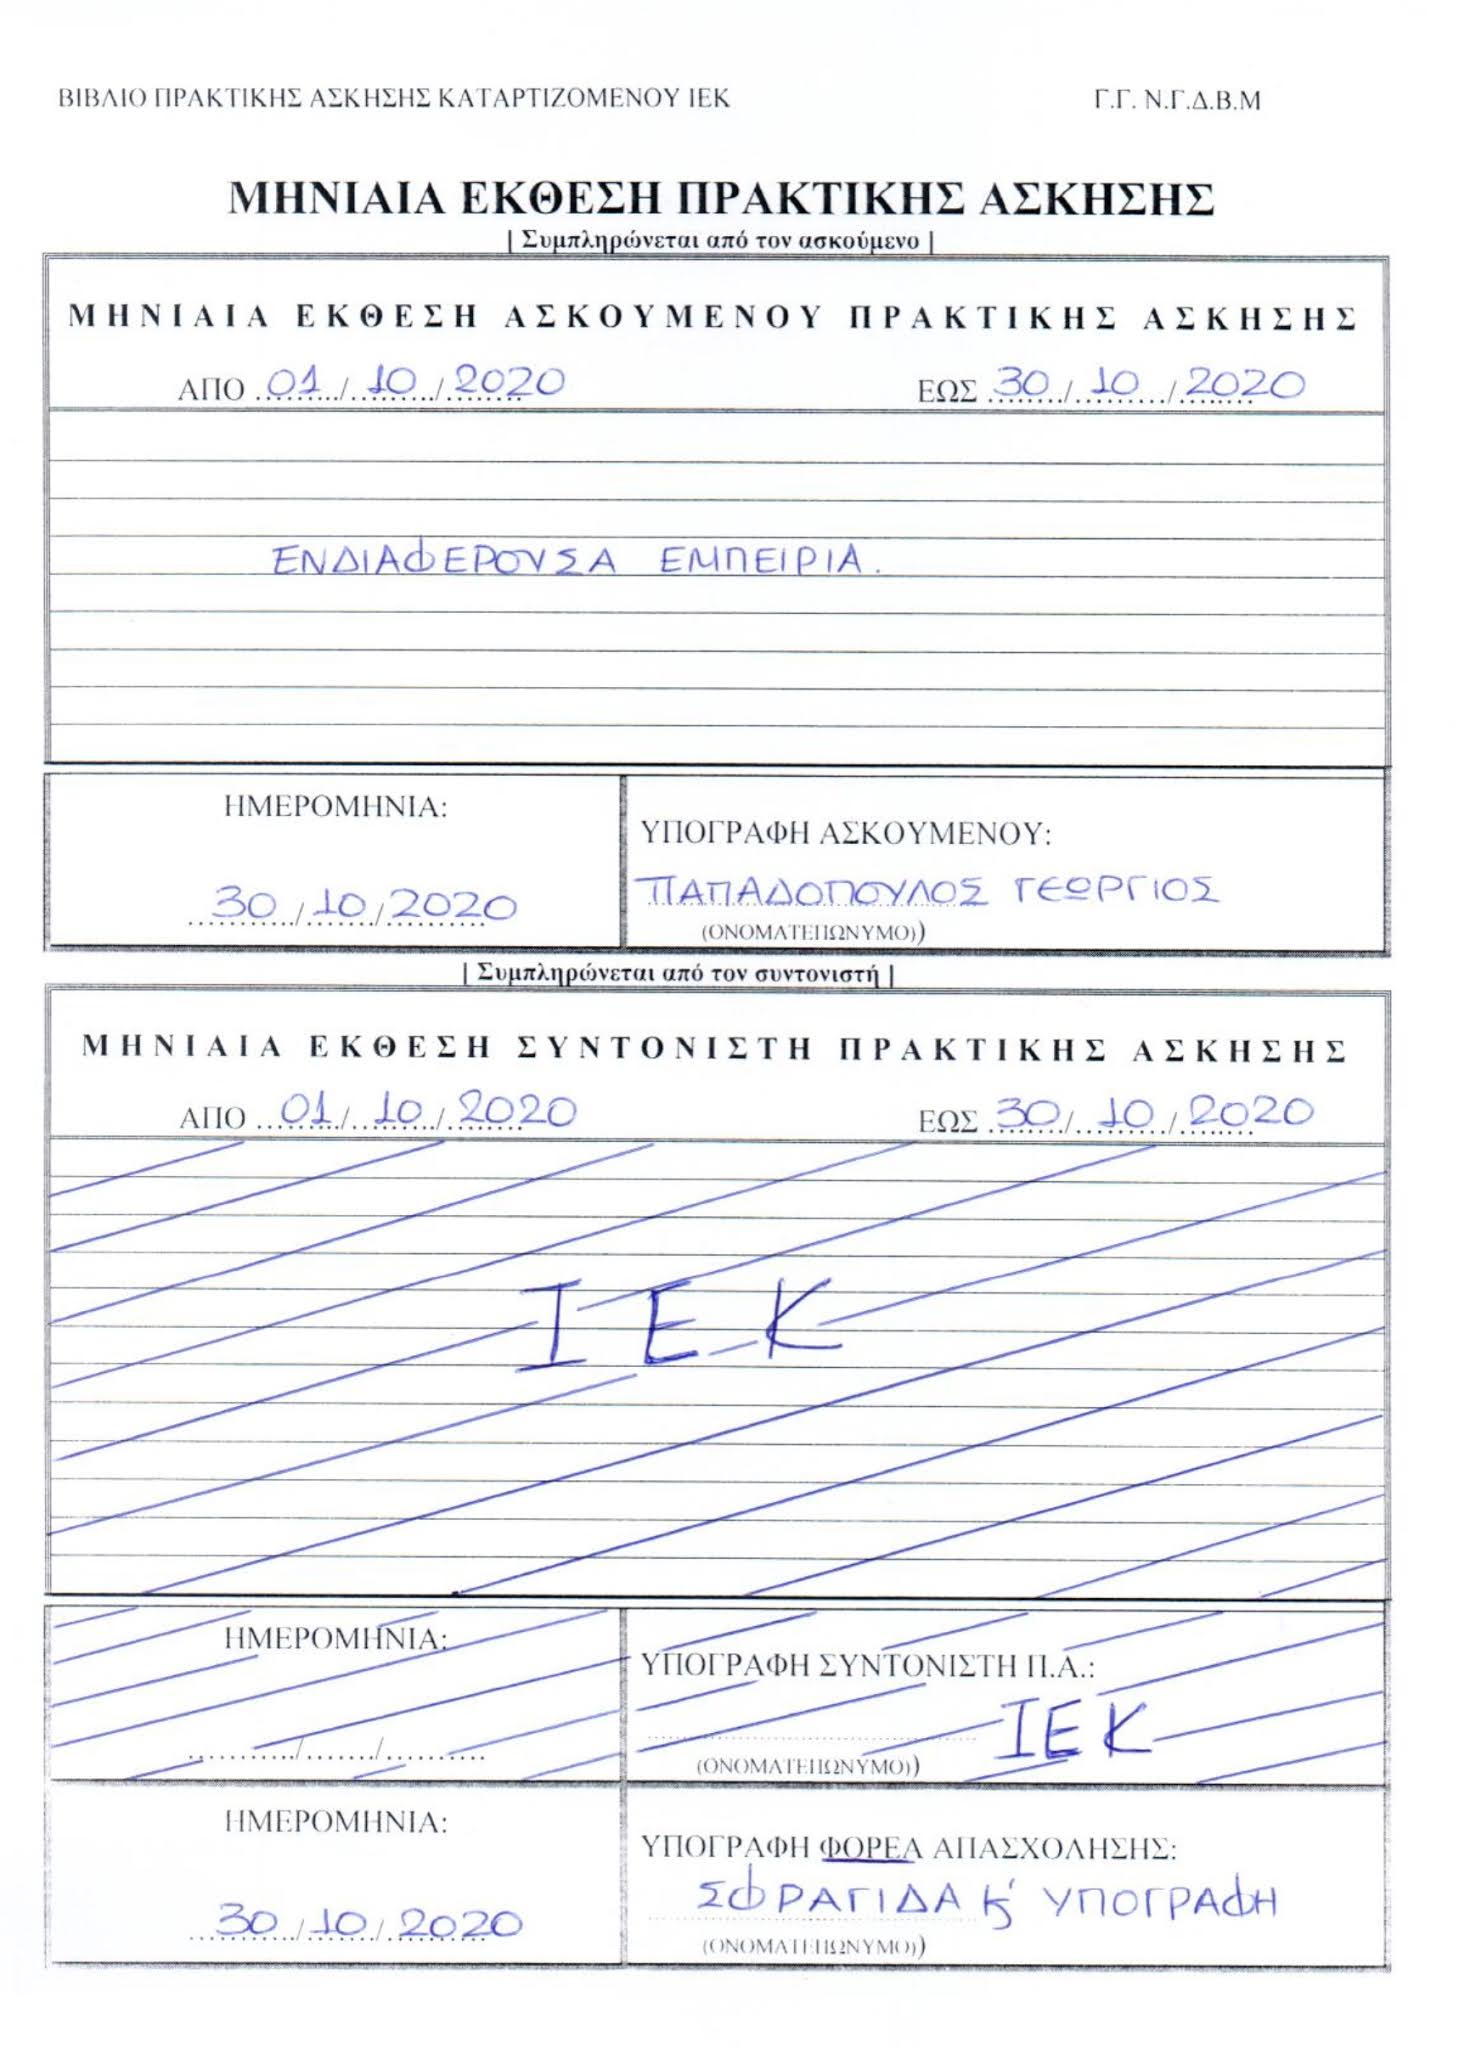 ΒΙΒΛΙΟ ΠΡΑΚΤΙΚΗΣ ΑΣΚΗΣΗΣ ΚΑΤΑΡΤΙΖΟΜΕΝΟΥ ΙΕΚ Γ.Γ. Ν.Γ.Δ.Β.Μ
ΜΗΝΙΑΙΑ ΕΚΘΕΣΗ ΠΡΑΚΤΙΚΗΣ ΑΣΚΗΣΗΣ
| Συμπληρώνεται από τον ασκούμενο |
ΜΗΝΙΑΙΑ ΕΚΘΕΣΗ ΑΣΚΟΥΜΕΝΟΥ ΠΡΑΚΤΙΚΗΣ ΑΣΚΗΣΗΣ
ΑΠΟ 01/10/2020 ΕΩΣ 30/10/2020
ΕΝΔΙΑΦΕΡΟΥΣΑ ΕΜΠΕΙΡΙΑ.
ΗΜΕΡΟΜΗΝΙΑ:
ΥΠΟΓΡΑΦΗ ΑΣΚΟΥΜΕΝΟΥ:
30/10/2020 ΠΑΠΑΔΟΠΟΥΛΟΣ ΓΕΩΡΓΙΟΣ
(ΟΝΟΜΑΤΕΠΩΝΥΜΟ))
| Συμπληρώνεται από τον συντονιστή |
ΜΗΝΙΑΙΑ ΕΚΘΕΣΗ ΣΥΝΤΟΝΙΣΤΗ ΠΡΑΚΤΙΚΗΣ ΑΣΚΗΣΗΣ
ΑΠΟ 01/10/2020 ΕΩΣ 30/10/2020
ΙΕΚ
ΗΜΕΡΟΜΗΝΙΑ:
ΥΠΟΓΡΑΦΗ ΣΥΝΤΟΝΙΣΤΗ Π.Α.:
ΙΕΚ
(ΟΝΟΜΑΤΕΠΩΝΥΜΟ))
ΗΜΕΡΟΜΗΝΙΑ:
ΥΠΟΓΡΑΦΗ ΦΟΡΕΑ ΑΠΑΣΧΟΛΗΣΗΣ:
30/10/2020 ΣΦΡΑΓΙΔΑ Κ' ΥΠΟΓΡΑΦΗ
(ΟΝΟΜΑΤΕΠΩΝΥΜΟ))